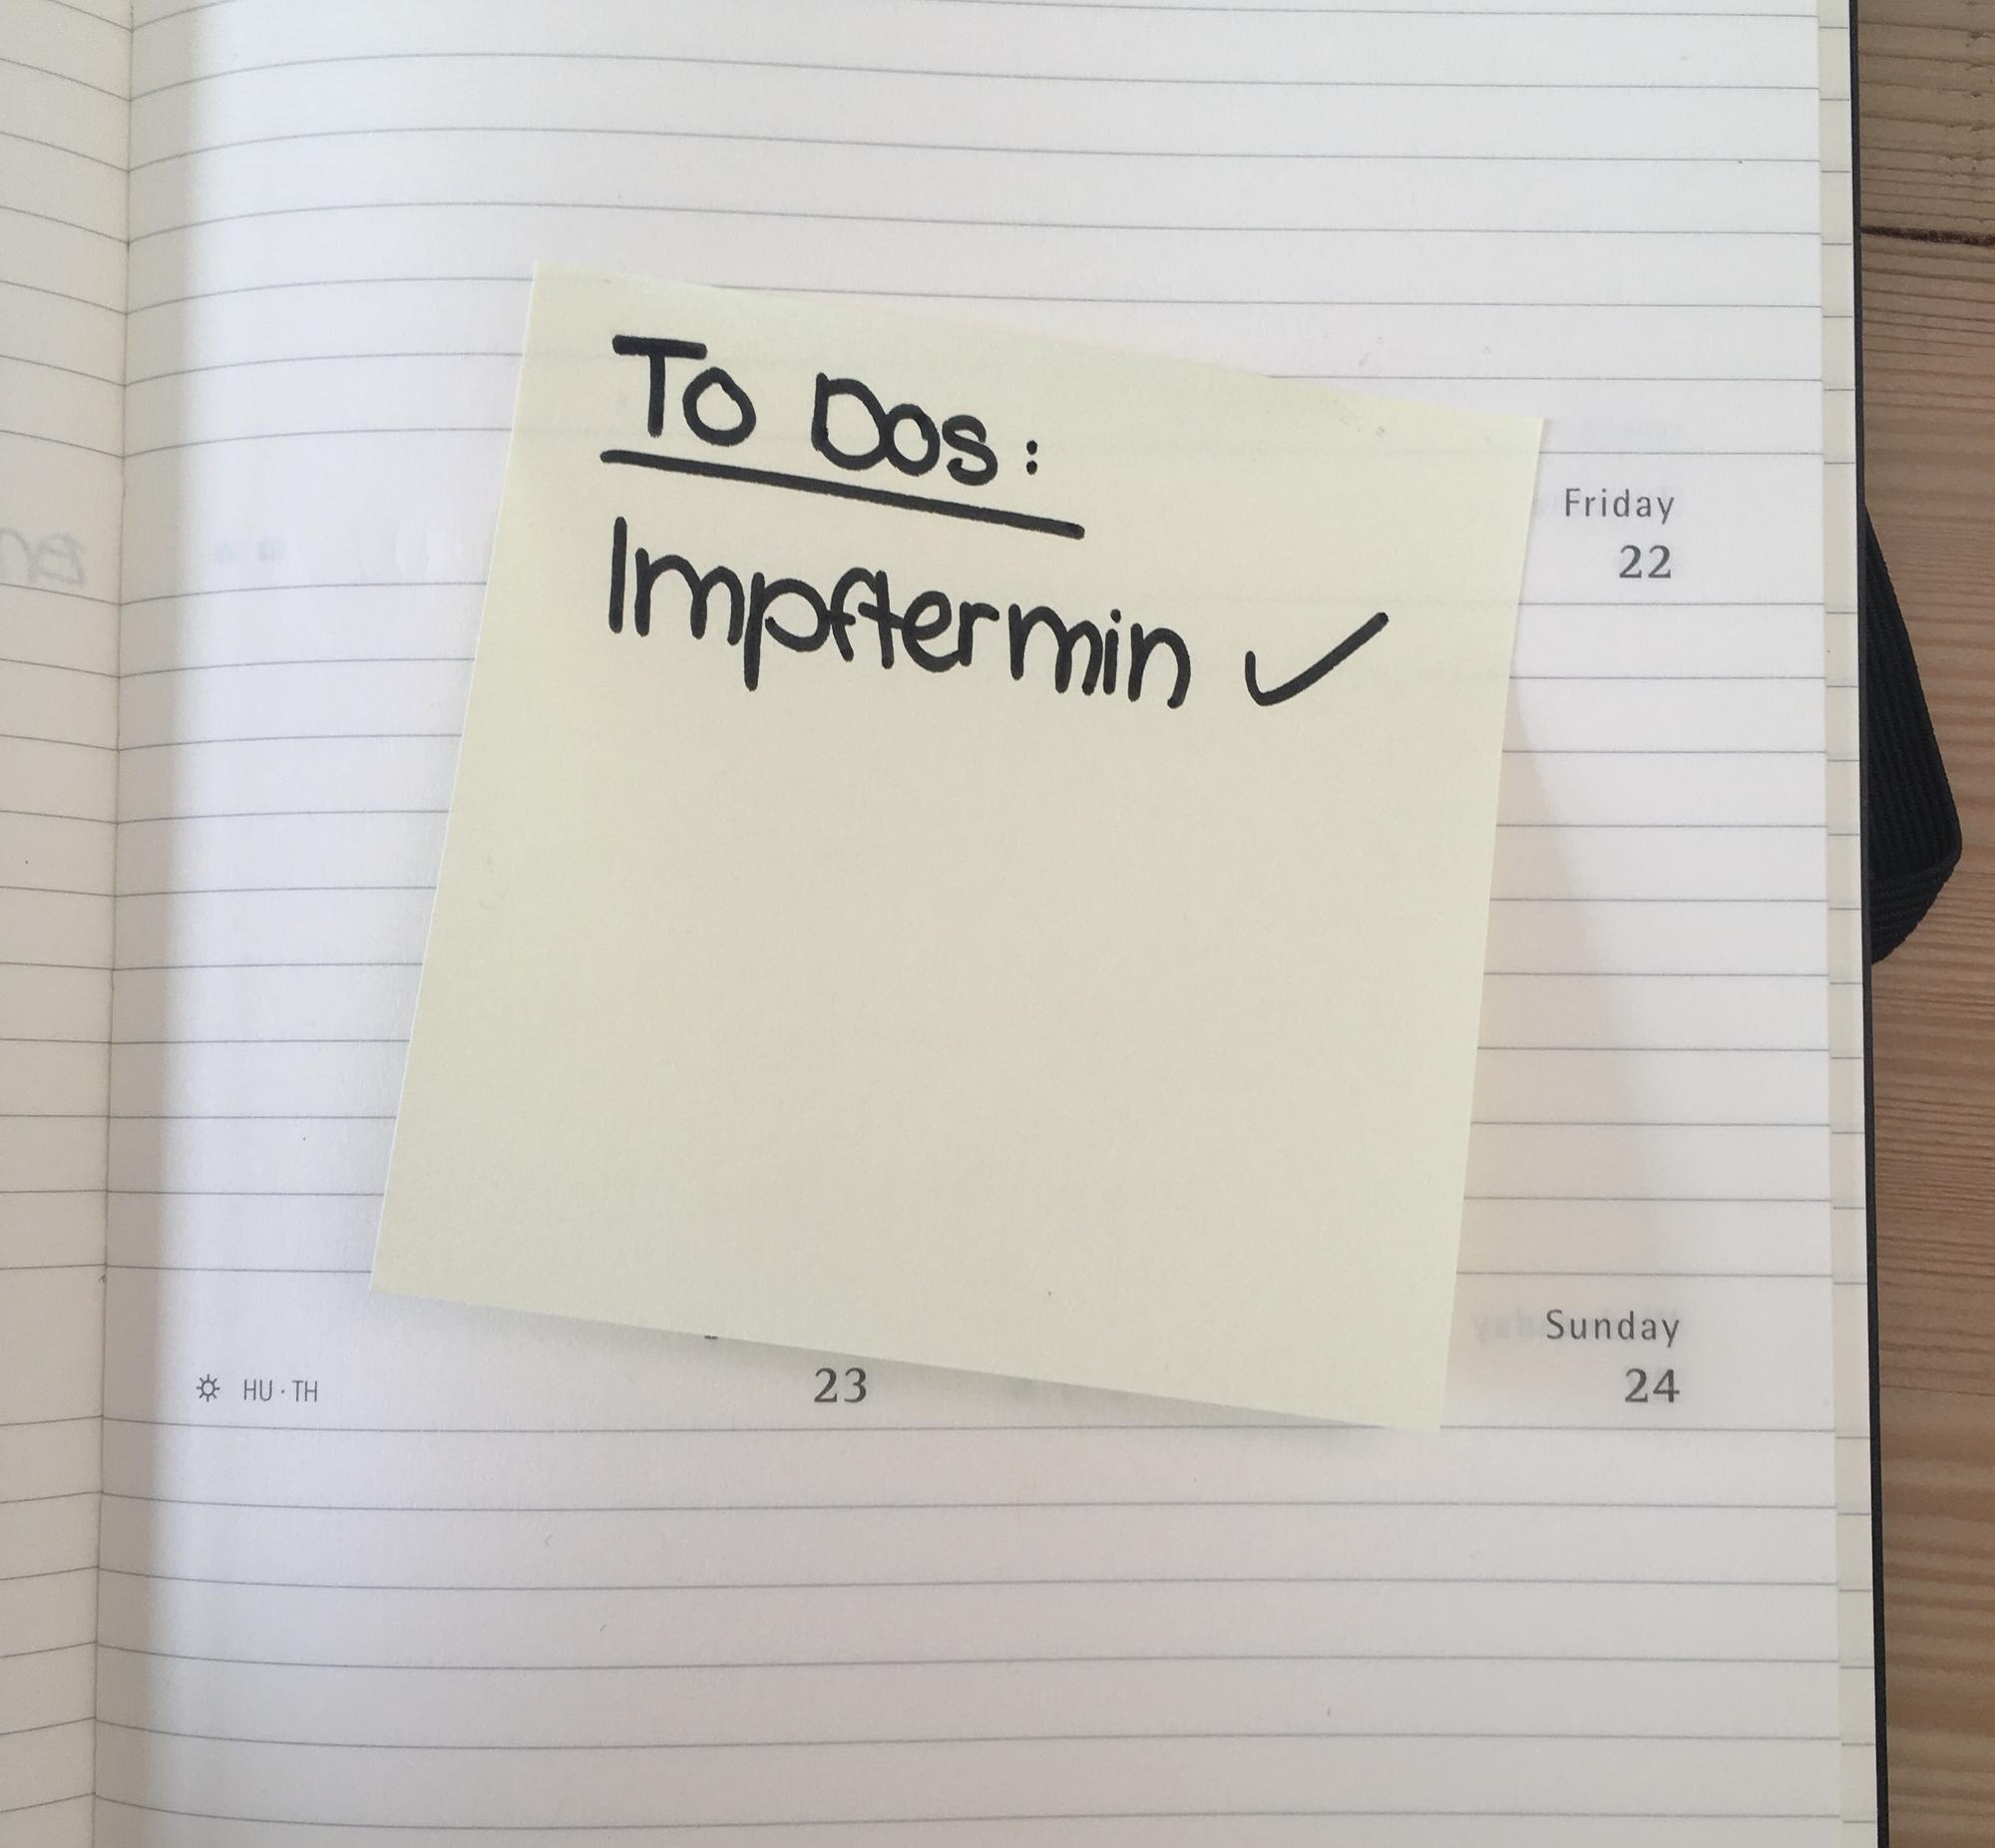 To Dos:
Impftermin ✓
Friday
22
Sunday
☼ HU · TH
23
24